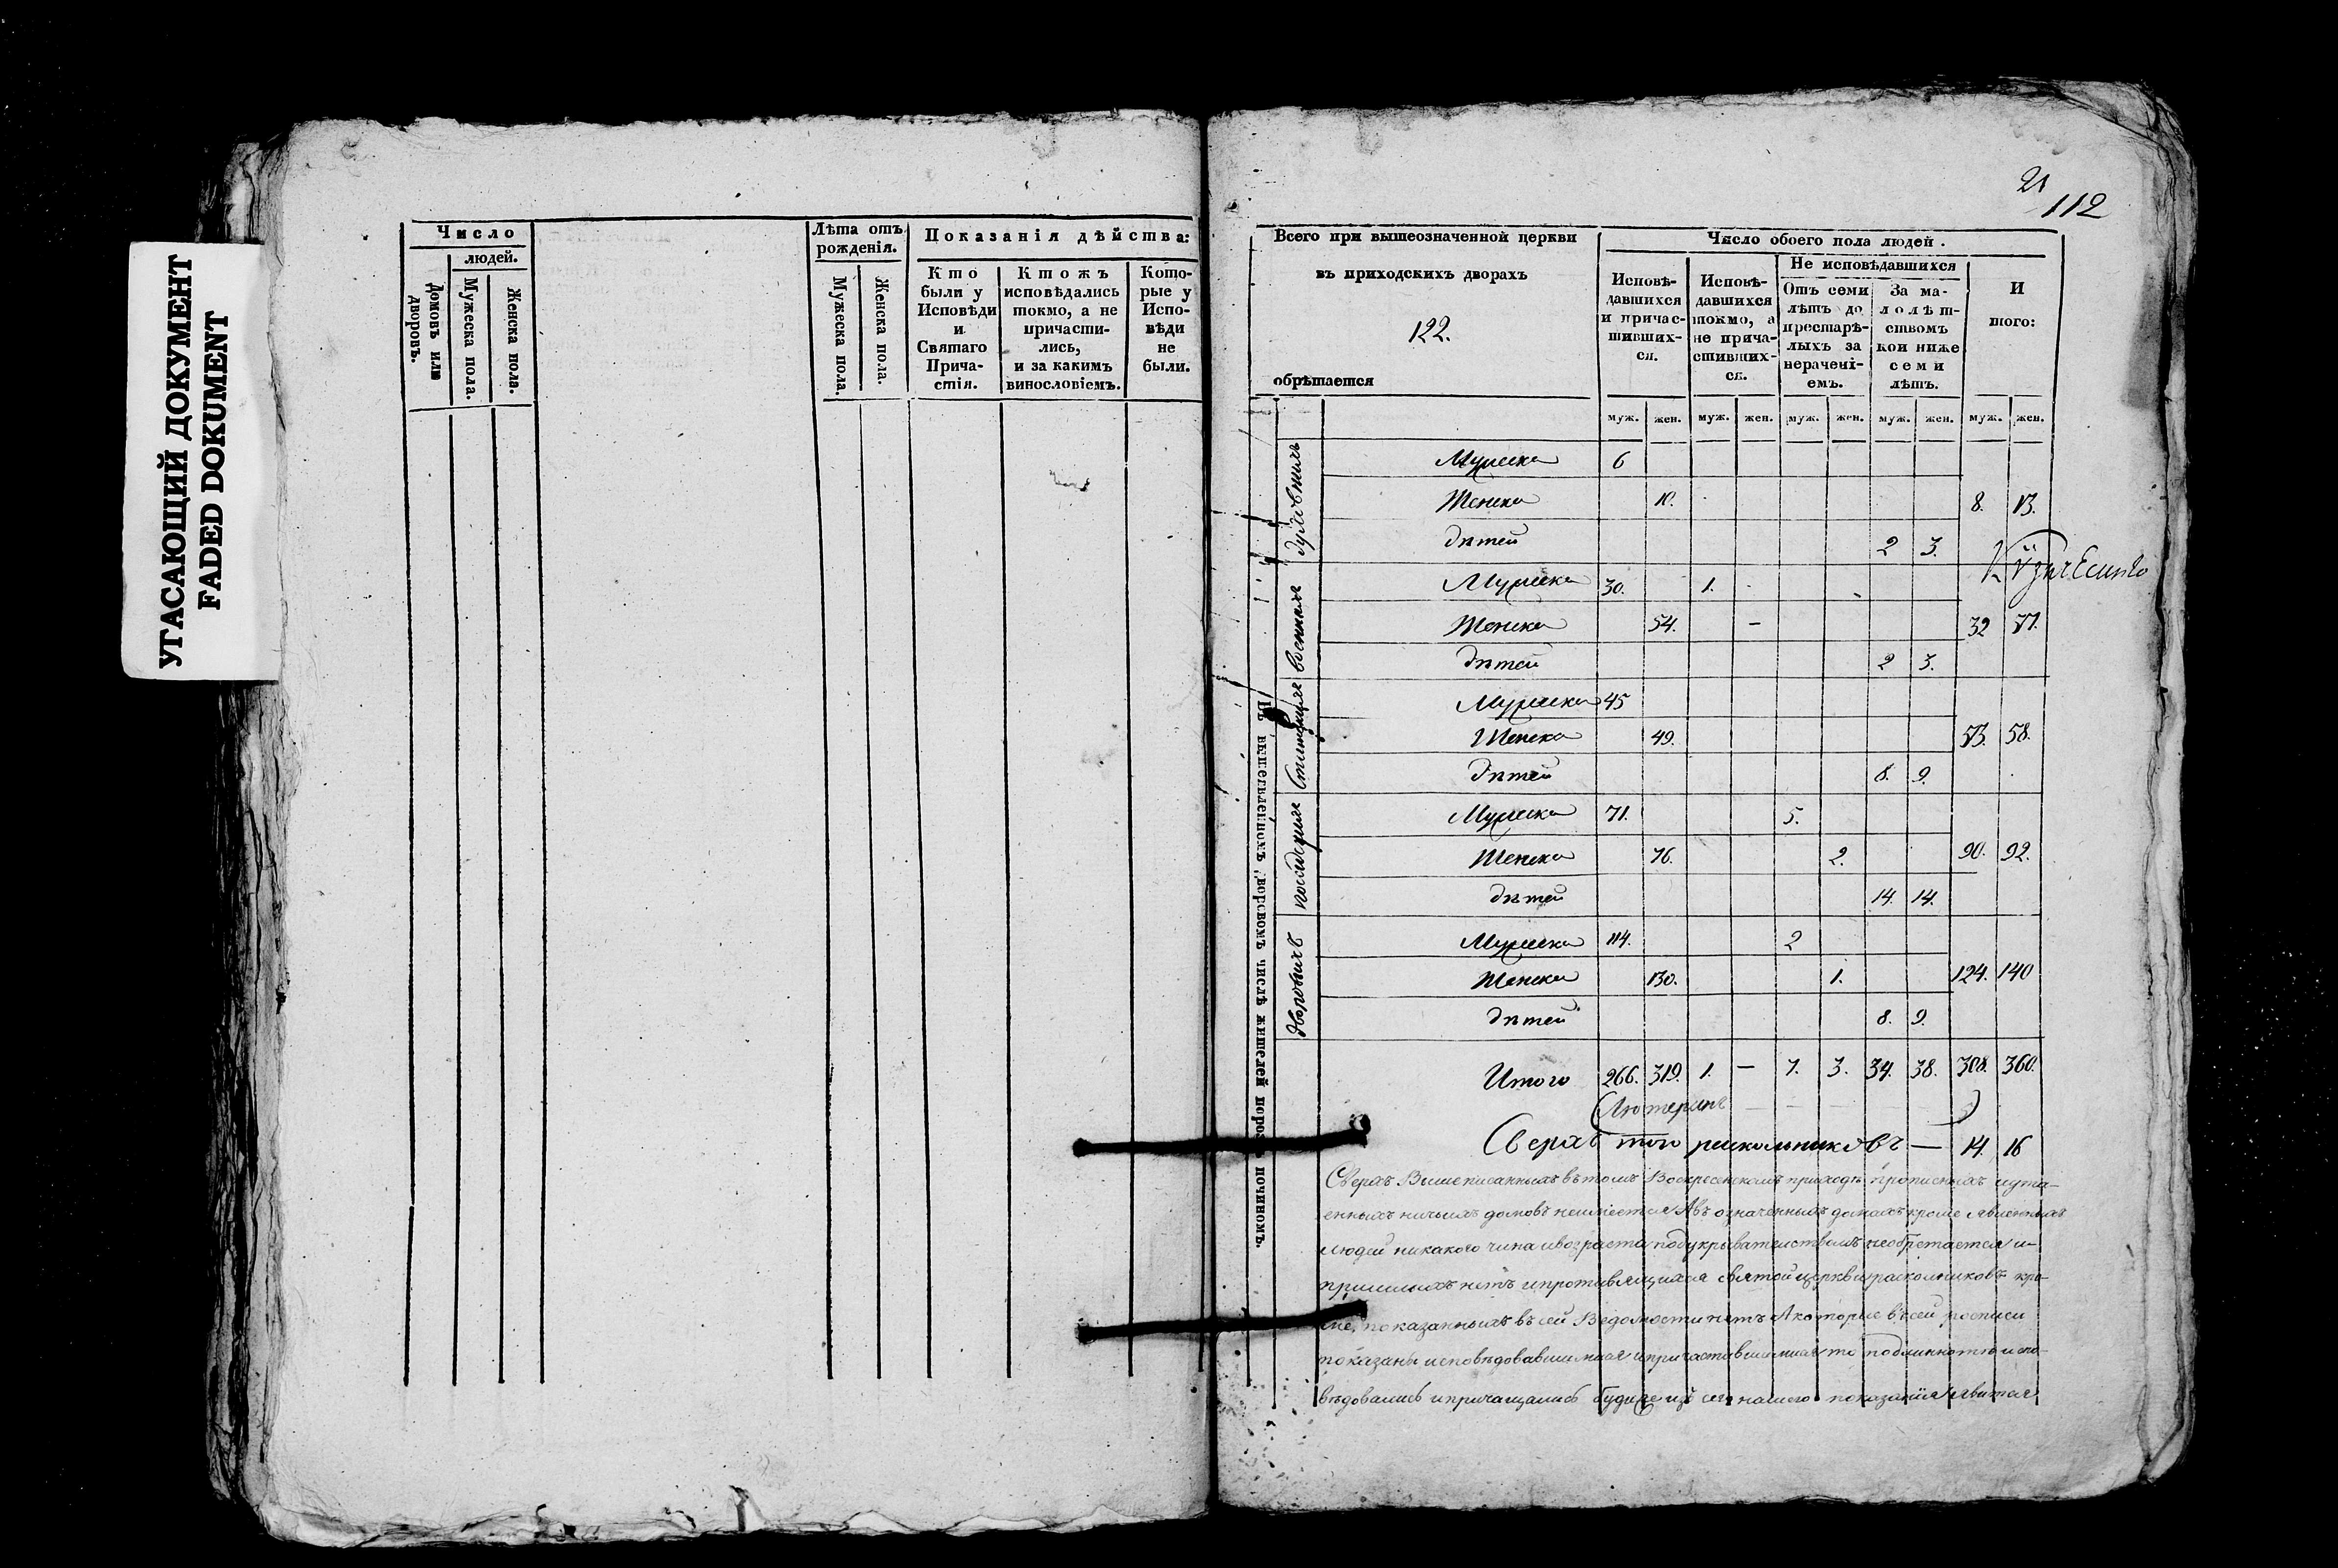 УГАСАЮЩИЙ ДОКУМЕНТ
FADED DOKUMENT
Число
людей.
Домовъ или дворовъ.
Мужеска пола.
Женска пола.
Лѣта отъ рожденія.
Мужеска пола.
Женска пола.
Показанія дѣйства:
Кто были у Исповѣди и Святаго Причастія.
Ктожъ исповѣдались токмо, а не причастились, и за какимъ винословіемъ.
Которые у Исповѣди не были.
21
112
Всего при вышеозначенной церкви
въ приходскихъ дворахъ
122.
обрѣтается
Число обоего пола людей.
Исповѣдавшихся и причастившихся.
Исповѣдавшихся токмо, а не причастившихся.
Не исповѣдавшихся
Отъ семи лѣтъ до престарѣлыхъ за нераченіемъ.
За малолѣтствомъ кои ниже семи лѣтъ.
И того:
муж. жен. муж. жен. муж. жен. муж. жен. муж. жен.
Въ вышеявленномъ дворовомъ числѣ жителей порознь починомъ.
духовнихъ
Мужеска 6
Женска 10. 8. 13.
дѣтей 2 3.
военнихъ
Мужеска 30. 1.
Женска 54. — 32 57.
дѣтей 2 3.
Мужеска 45
Женска 49. 53. 58.
дѣтей 8. 9.
Мужеска 71. 5.
Женска 76. 2. 90. 92.
дѣтей 14. 14.
дворовыхъ
Мужеска 114. 2
Женска 130. 1. 124. 140
дѣтей 8. 9.
Итого 266. 319. 1. — 7. 3. 34. 38. 308. 360.
Лютеранъ
Сверхъ того раскольниковъ — 14. 16
Сверхъ Вышеписанныхъ въ томъ Воскресенскомъ приходѣ прописныхъ и ута-
енныхъ ничьихъ домовъ неимѣется А въ означенныхъ домахъ кроме явленныхъ
людей никакого чина и возраста под укрывательствомъ необрѣтается и
пришлыхъ нетъ и противящихся святой церкви раскольниковъ кро-
ме, показанныхъ въ сей Ведомости нетъ А которые въ сей росписи
показаны исповѣдовавшимися и причастившимися те подлинно исπо-
вѣдовались и причащались будиже из сего нашего показания явится